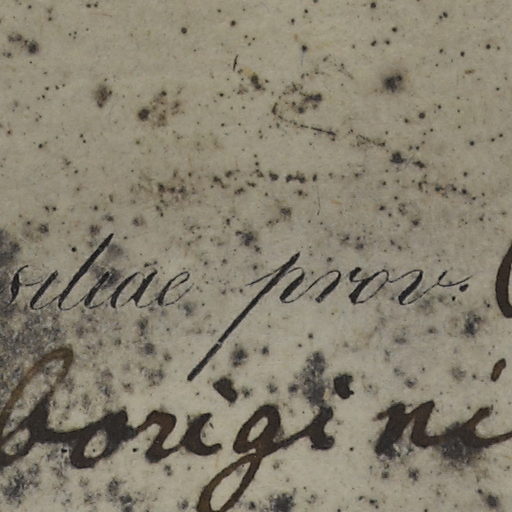 siliae prov.
borigini